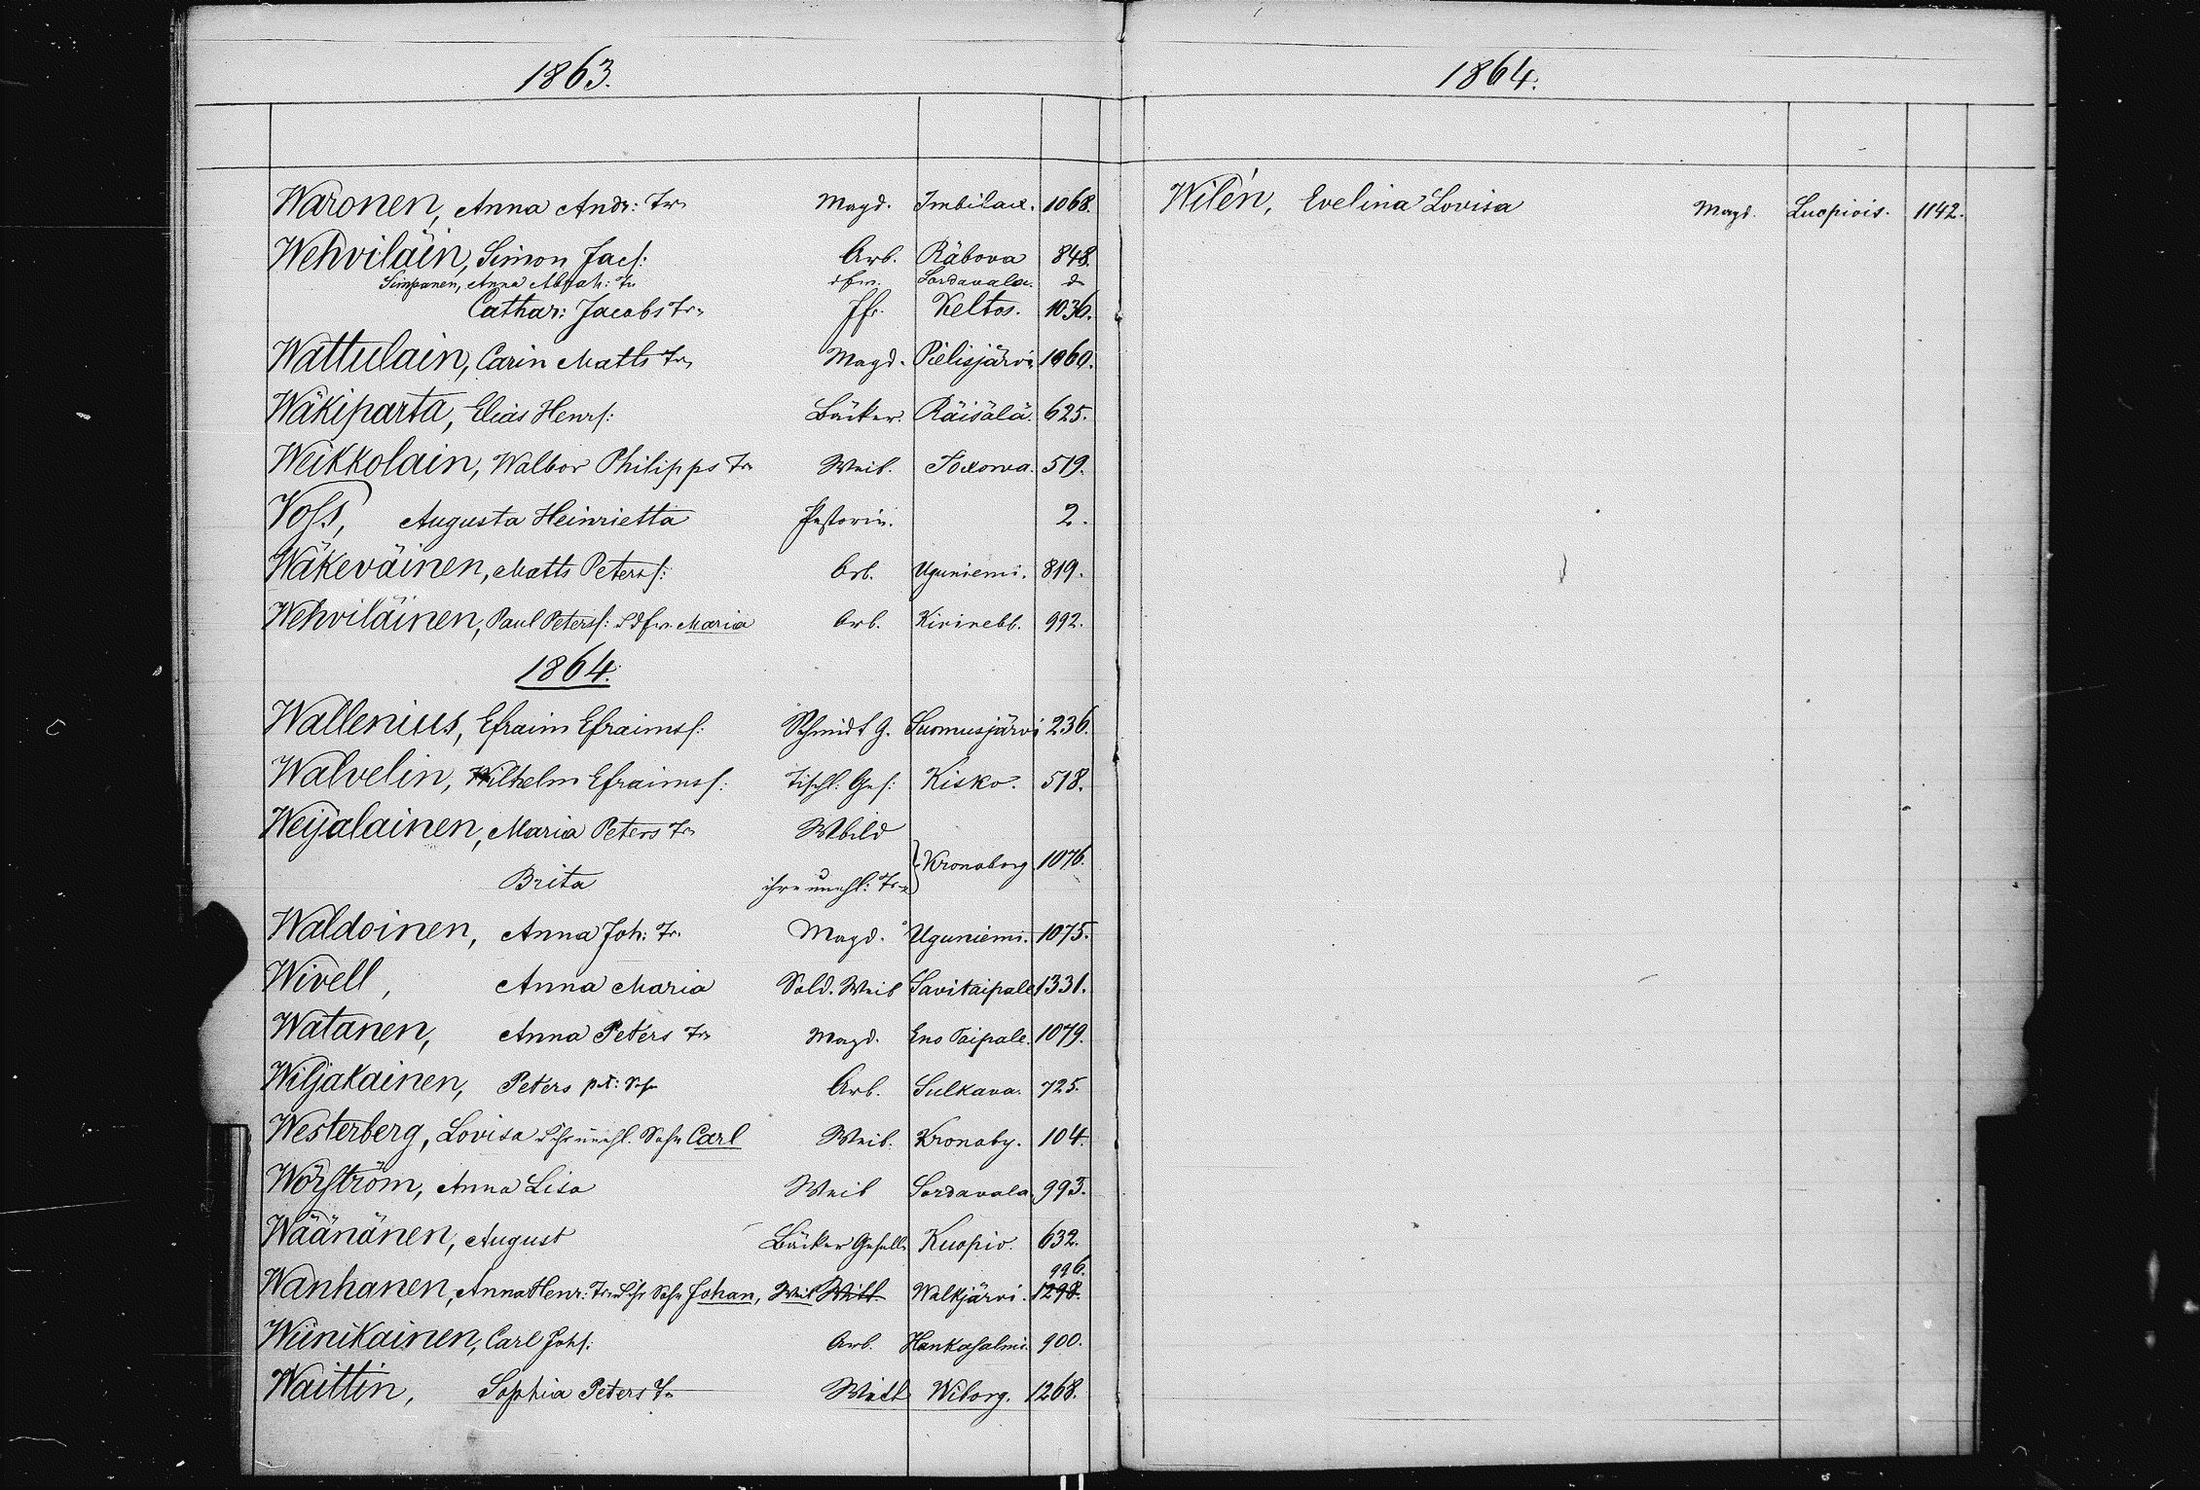 1863.
Waronen, Anna Andr: Tr. Magd. Imbilax. 1068.
Wehviläin, Simon Jacs: Arb. Räbova 848.
Simpanen, Anna Abrah: Tr Sordavala. d
Cathar: Jacobs Tr. Jfr. Keltos. 1036.
Wattulain, Carin Matts Tr. Magd. Pielisjärvi. 1060.
Wäkiparta, Elias Henrs: Bäcker. Räisälä. 625.
Weikkolain, Walbor Philipps Tr. Weib. Toxowa. 519.
Voss, Augusta Heinrietta Pastorin. 2.
Wäkeväinen, Matts Peterss: Arb. Uguniemi. 819.
Wehviläinen, Paul Peterss: Maria Arb. Kivinebb. 992.
1864.
Wallenius, Efraim Efraimss: Schmidt G. Suomusjärvi 236.
Walvelin, Wilhelm Efraimss: Tischl: Ges: Kisko. 518.
Weijalainen, Maria Peters Tr. Kronoborg 1076.
Brita ihre unehl: Tr.
Waldoinen, Anna Joh: Tr. Magd. Uguniemi. 1075.
Wivell, Anna Maria Sold. Weib Savitaipale 1331.
Watanen, Anna Peters Tr. Magd. Eno Taipale. 1079.
Wiljakainen, Peters Arb. Sulkava. 725.
Westerberg, Lovisa unehl. Sohn Carl Weib. Kronoby. 104.
Wörström, Anna Lisa Weib Sordavala. 993.
Wäänänen, August Bäcker Gesell. Kuopio. 632.
996.
Wanhanen, Anna Henr: Tr. Sohn Johan, Weib Witt. Walkjärvi. 1298.
Wiinikainen, Carl Johs: Arb. Hankasalmi. 900.
Waittin, Sophia Peters Tr. Weib Wiborg. 1268.
1864.
Wilén, Evelina Lovisa Magd. Luopiois. 1142.